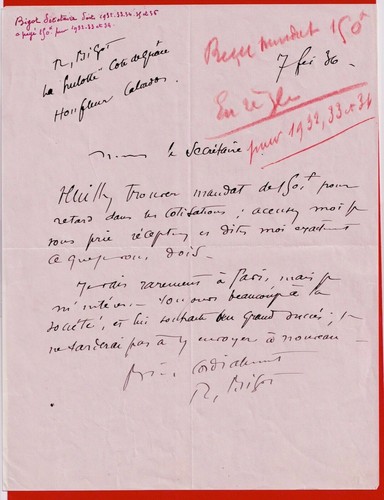 Bigot Secrétaire 1932.33.34.35 et 36
a payé 150f pour 1932.33 et 34.
R, Bigot
La Côte de Grâce
Honfleur Calvados.
Reçu mandat 150f
En règle
pour 1932, 33 et 34
7 fév 36.
le Secrétaire
Veuillez trouver mandat de 150f pour
retard dans les cotisations ; accusez moi je
vous prie réception et dites moi exactement
ce que je vous dois.
Je vais rarement à Paris, mais je
beaucoup à la
société, et lui souhaite un grand succès ; je
ne tarderai pas à y envoyer à nouveau
Bien Cordialement
R, Bigot